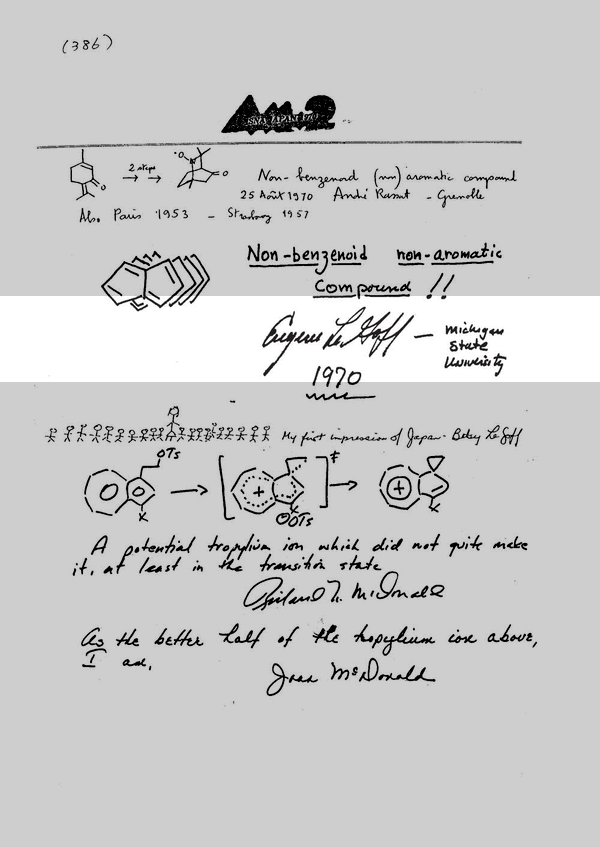 (386)
ISNA JAPAN 1970
2 steps
O
N
O
O
Non-benzenoid (nm) aromatic compound
25 Août 1970 André Rassat - Grenoble
Also Paris 1953 - Strasbourg 1957
Non-benzenoid non-aromatic
Compound !!
Eugene LeGoff - Michigan
State
University
1970
My first impression of Japan - Betsy LeGoff
OTs
X
+
‡
X
OTs
+
X
A potential tropylium ion which did not quite make
it, at least in the transition state
Richard N. McDonald
As the better half of the tropylium ion above,
I am,
Joan McDonald